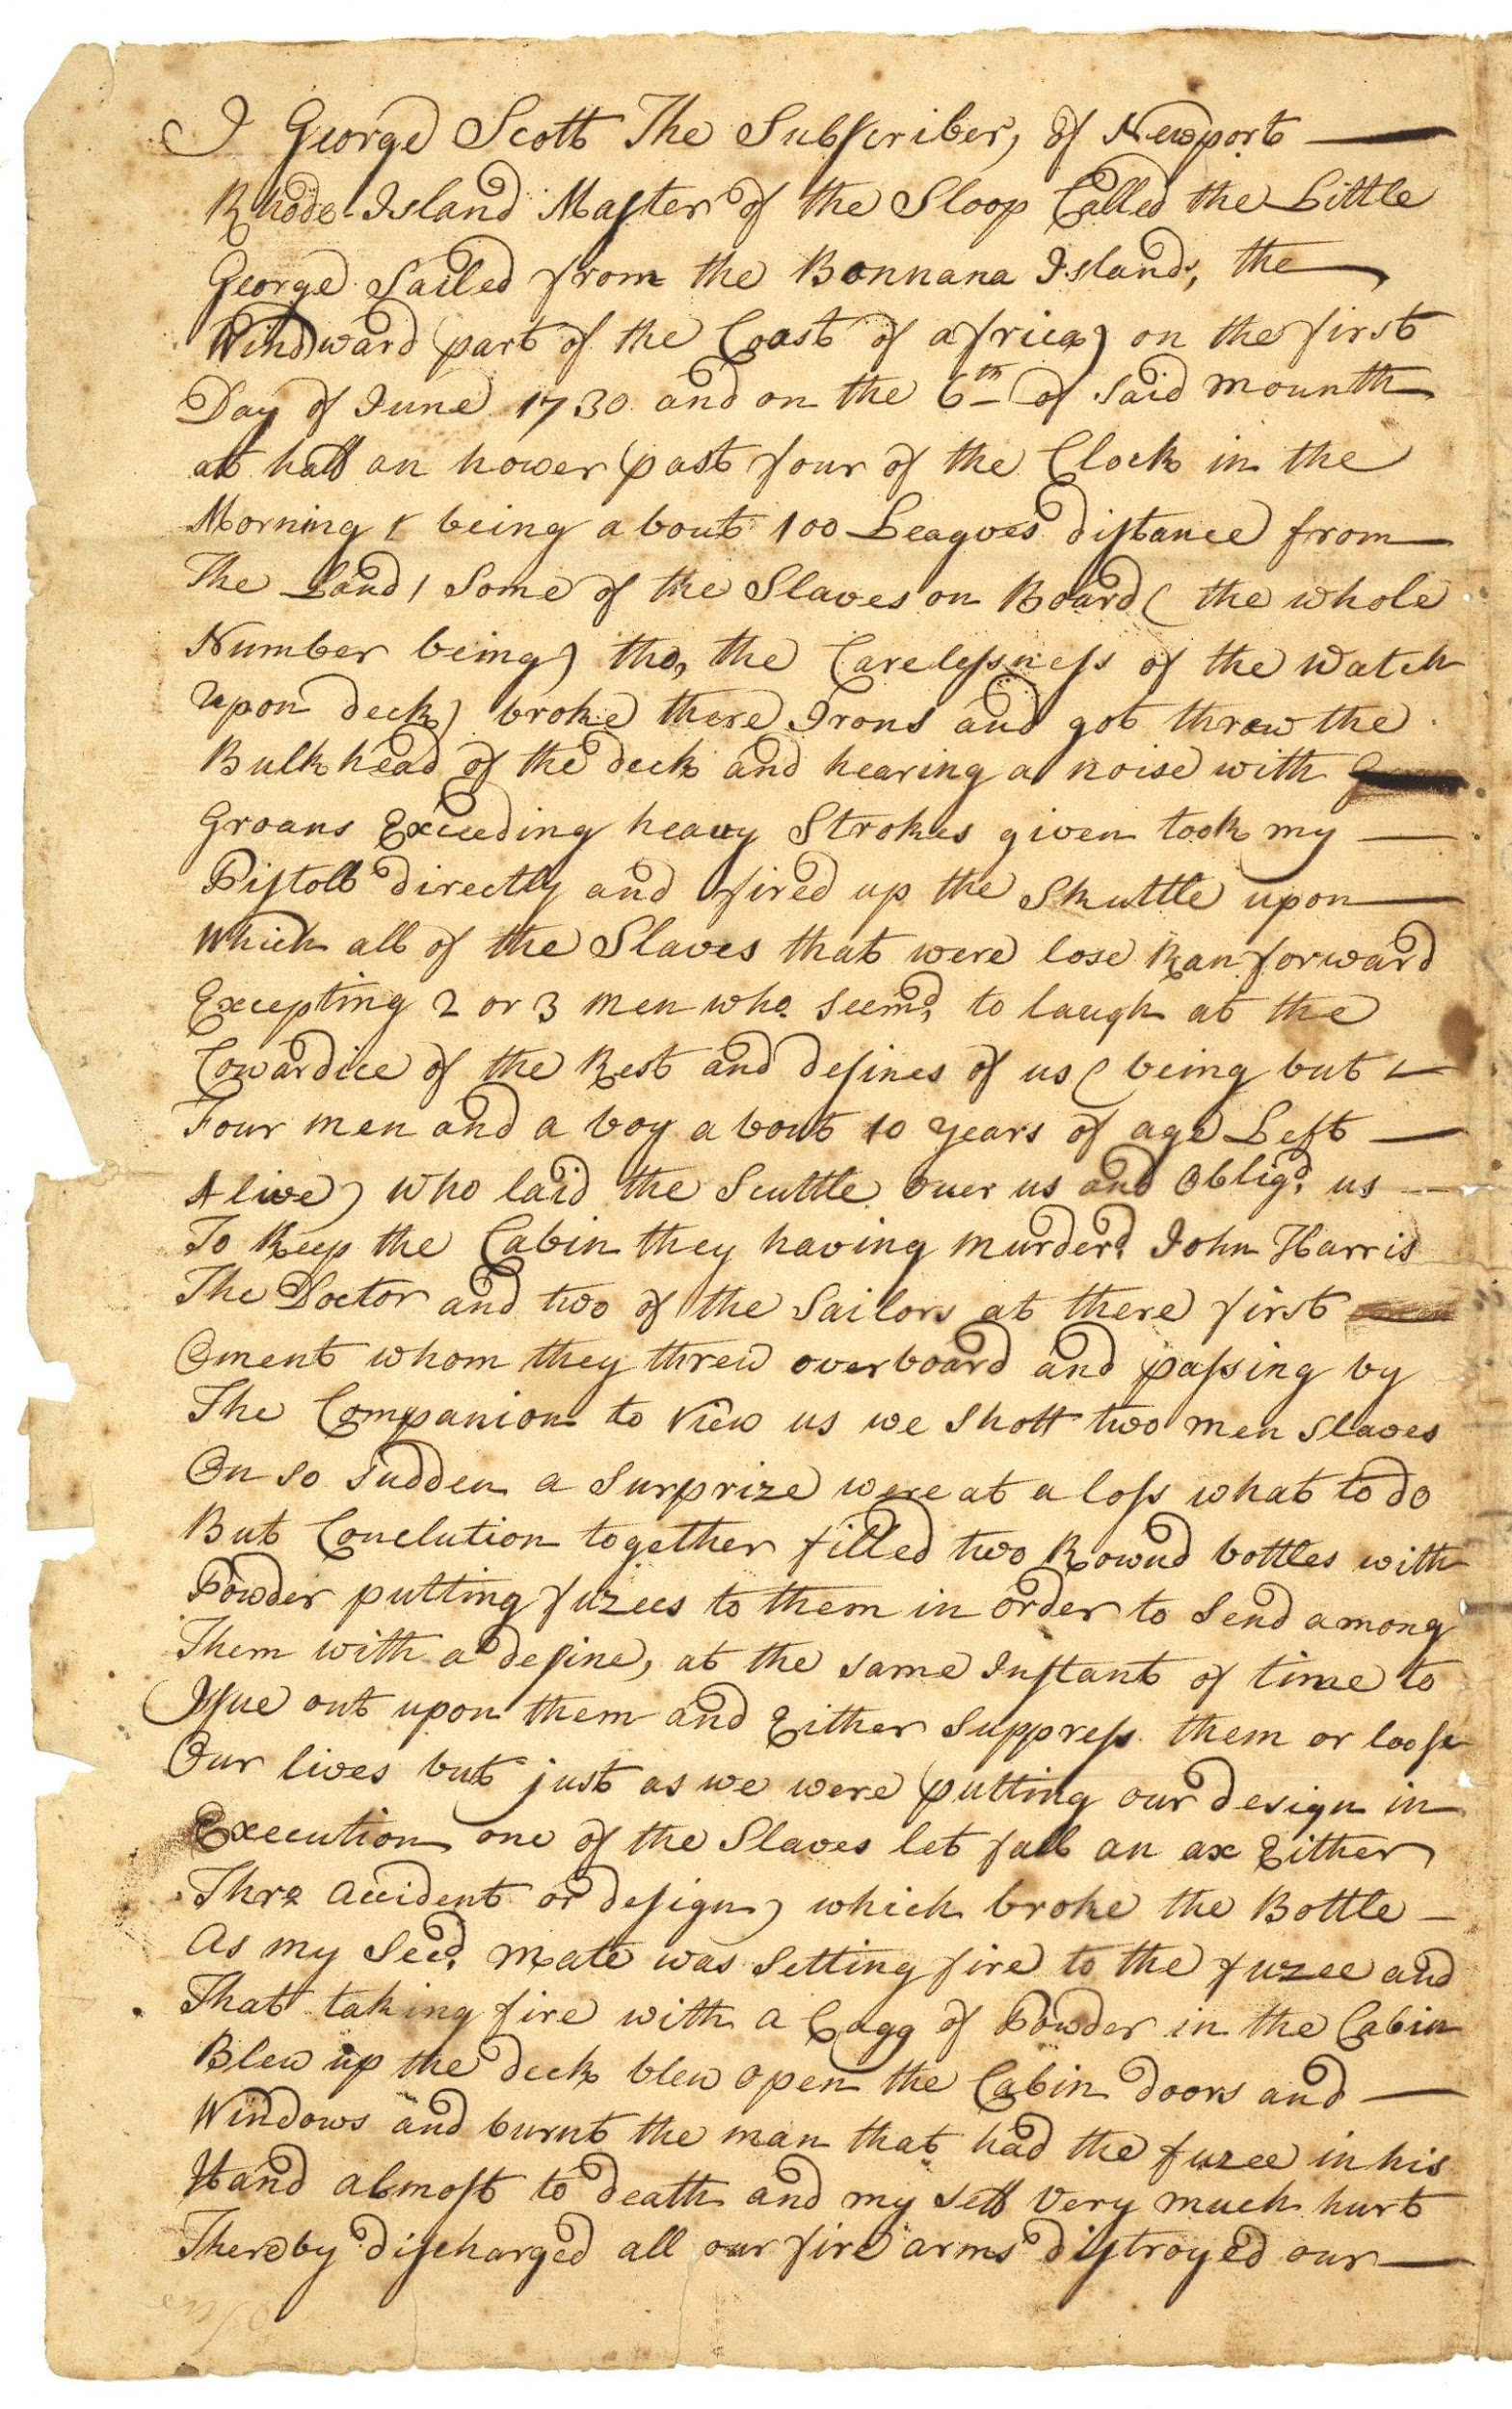 I George Scott The Subscriber, of Newport —
Rhode Island Master of the Sloop Called the Little
George Sailed from the Bonnana Islands, the
Windward part of the Coast of africa) on the first
Day of June 1730 and on the 6th of Said mounth
at half an hower past four of the Clock in the
Morning & being about 100 Leagves distance from
The Land / Some of the Slaves on Board ( the whole
Number being) tho, the Carelessness of the watch
upon deck) broke there Irons and got threw the
Bulkhead of the deck and hearing a noise with
Groans Exceeding heavy Strokes given took my —
Pistoll directly and fired up the Skuttle upon —
Which all of the Slaves that were lose Ran forward
Excepting 2 or 3 men who seemd, to laugh at the
Cowardice of the Rest and desines of us ( being but —
Four men and a boy about 10 years of age Left —
Alive) who laid the Scuttle over us and Obligd, us —
To Keep the Cabin they having murderd John Harris
The Doctor and two of the Sailors at there first
Oment whom they threw overboard and passing by
The Companion to view us we Shott two men Slaves
On so sudden a Surprize were at a loss what to do
But Conclution together filled two Rownd bottles with
Powder putting fuzees to them in order to Send among
Them with a desine, at the same Instant of time to
Issue out upon them and Either Suppress them or loose
Our lives but just as we were putting our design in
Execution one of the Slaves let fall an ax Either
Thro accident or design) which broke the Bottle —
As my Secd. mate was Setting fire to the fuzee and
That taking fire with a Cagg of Powder in the Cabin
Blew up the deck blew open the Cabin doors and —
Windows and burnt the man that had the fuzee in his
Hand almost to death and my self Very much hurt
Thereby discharged all our fire arms distroyed our —